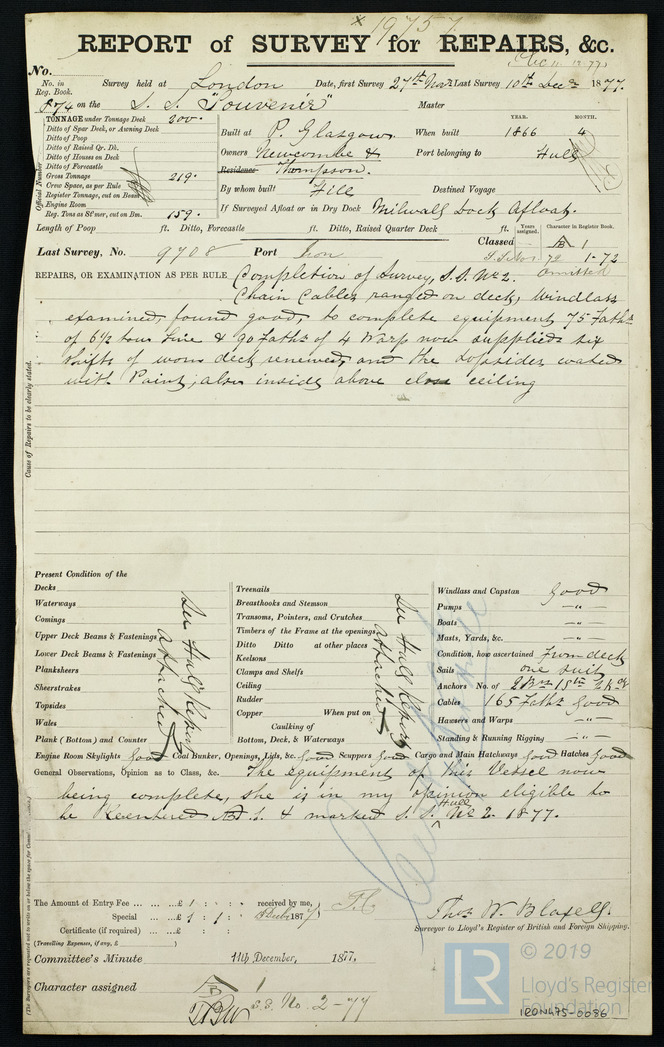 19757
REPORT of SURVEY for REPAIRS, &c.
No.
No. in Reg. Book. Survey held at London Date, first Survey 27th Novr Last Survey 10th Decr 1877.
874 on the S. S. "Souvenir" Master
TONNAGE under Tonnage Deck 200.
Ditto of Spar Deck, or Awning Deck
Ditto of Poop
Ditto of Raised Qr. Dk.
Ditto of Houses on Deck
Ditto of Forecastle
Gross Tonnage 219.
Crew Space, as per Rule
Register Tonnage, cut on Beam
Engine Room
Reg. Tons as St'mer, cut on Bm. 159.
Official Number
YEAR. MONTH.
Built at P. Glasgow. When built 1866 4
Owners Newcombe & Port belonging to Hull
Residence Thompson.
By whom built Hill Destined Voyage
If Surveyed Afloat or in Dry Dock Milwall Dock Afloat.
Length of Poop ft. Ditto, Forecastle ft. Ditto, Raised Quarter Deck ft.
Years assigned. Character in Register Book.
Classed A B 1
Last Survey, No. 9708 Port Iron 72 1-72
omitted
REPAIRS, OR EXAMINATION AS PER RULE Completion of Survey, S.S. No 2.
Chain Cables ranged on deck, Windlass
examined, found good, to complete equipment 75 Faths
of 6½ tow line & 90 Faths of 4 Warp now supplied six
shifts of worn deck renewed, and the topsides coated
with Paint; also inside above close ceiling
Cause of Repairs to be clearly stated.
Present Condition of the
Decks
Waterways
Comings
Upper Deck Beams & Fastenings
Lower Deck Beams & Fastenings
Planksheers
Sheerstrakes
Topsides
Wales
Plank (Bottom) and Counter
See Hull Report attached
Treenails
Breasthooks and Stemson
Transoms, Pointers, and Crutches
Timbers of the Frame at the openings
Ditto Ditto at other places
Keelsons
Clamps and Shelfs
Ceiling
Rudder
Copper When put on
Caulking of
Bottom, Deck, & Waterways
See Hull Report attached
Windlass and Capstan Good
Pumps —"—
Boats —"—
Masts, Yards, &c. —"—
Condition, how ascertained From deck
Sails one suit
Anchors No. of
Cables 165 Faths Good
Hawsers and Warps —"—
Standing & Running Rigging —"—
Engine Room Skylights Good Coal Bunker, Openings, Lids, &c. Good Scuppers Good Cargo and Main Hatchways Good Hatches Good
General Observations, Opinion as to Class, &c. The equipment of this Vessel now
being complete, she is in my opinion eligible to
be Reentered A B 1. & marked S. S. Hull No 2. 1877.
The Amount of Entry Fee ... ... £ 1 : : received by me,
Special ... ... £ 1 : 1 : 187
Certificate (if required) ... £ : :
(Travelling Expenses, if any, £ )
Thos W. Blaxell.
Surveyor to Lloyd's Register of British and Foreign Shipping.
Committee's Minute 11th December, 1877.
Character assigned A B 1
S.S. No. 2-77
LR
© 2019
Lloyd's Register
Foundation
IRON475-0086